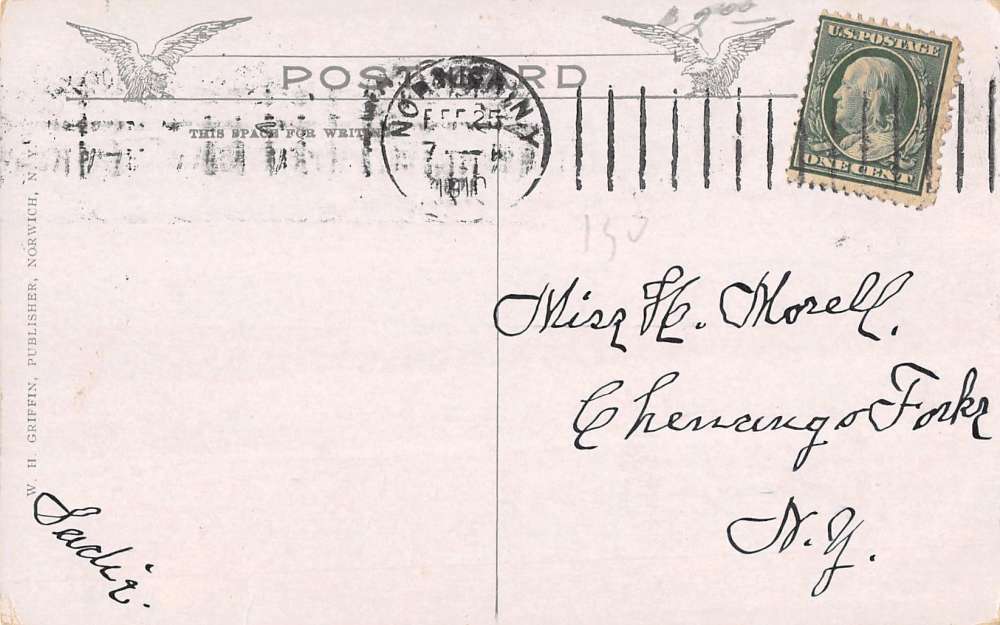 POST CARD
THIS SPACE FOR WRIT
NORWICH N.Y.
FEB 25
7
1910
U.S. POSTAGE
ONE CENT
150
Miss H. Morell.
Chenango Forks
N.Y.
W. H. GRIFFIN, PUBLISHER, NORWICH, N. Y.
Sadie.